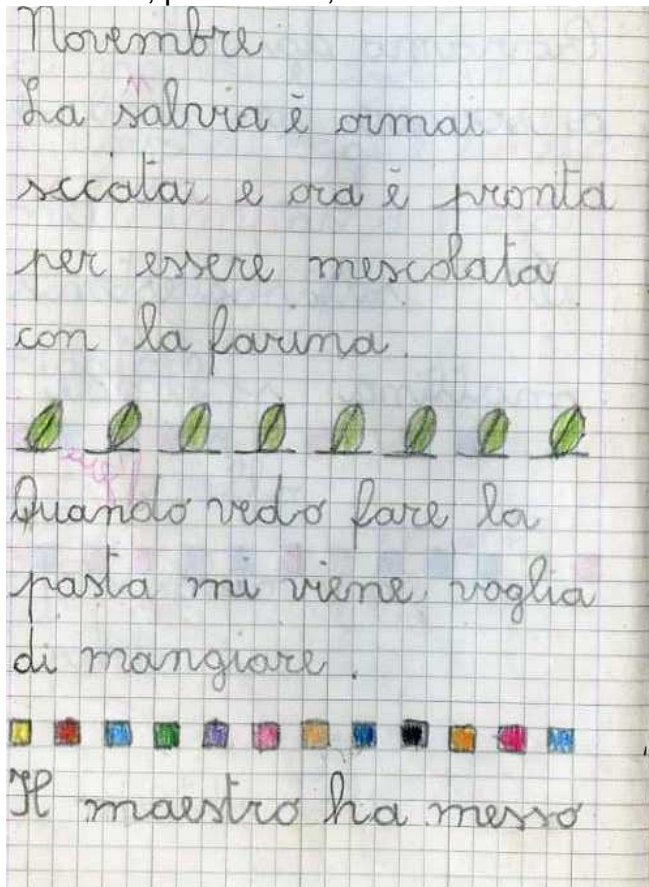 Novembre
La salvia è ormai
sccata e ora è pronta
per essere mescolata
con la farina.
Quando vedo fare la
pasta mi viene voglia
di mangiare.
Il maestro ha messo